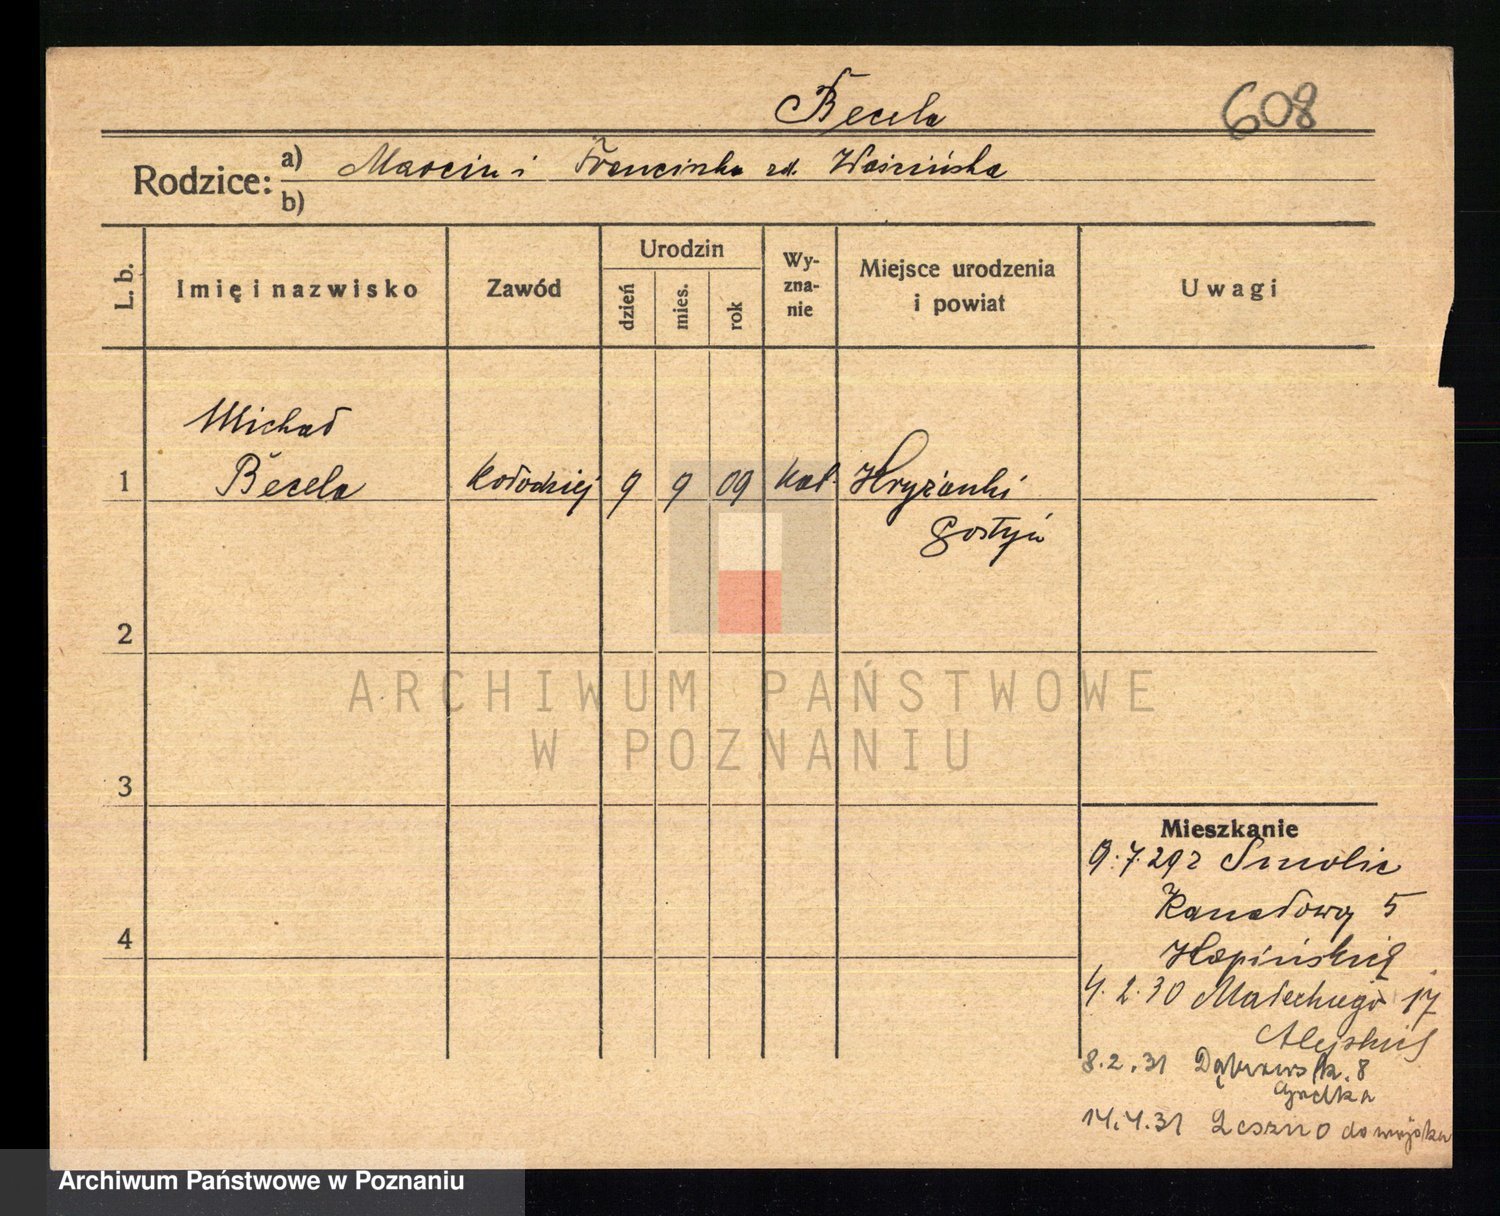 Becela
608
Rodzice:
a) Marcin i Franciszka zd. Woźnińska
b)
L. b.
Imię i nazwisko
Zawód
Urodzin
dzień
mies.
rok
Wy-
zna-
nie
Miejsce urodzenia
i powiat
Uwagi
Michał
1 Becela kołodziej 9 9 09 kat. Kryżanki
Gostyń
2
3
4
Mieszkanie
9.7.29 z Smolic
Kanałowa 5
4.2.30 Małeckiego 17
8.2.31 Dąbrowsk. 8
14.4.31 Leszno do wojska
ARCHIWUM PAŃSTWOWE
W POZNANIU
Archiwum Państwowe w Poznaniu